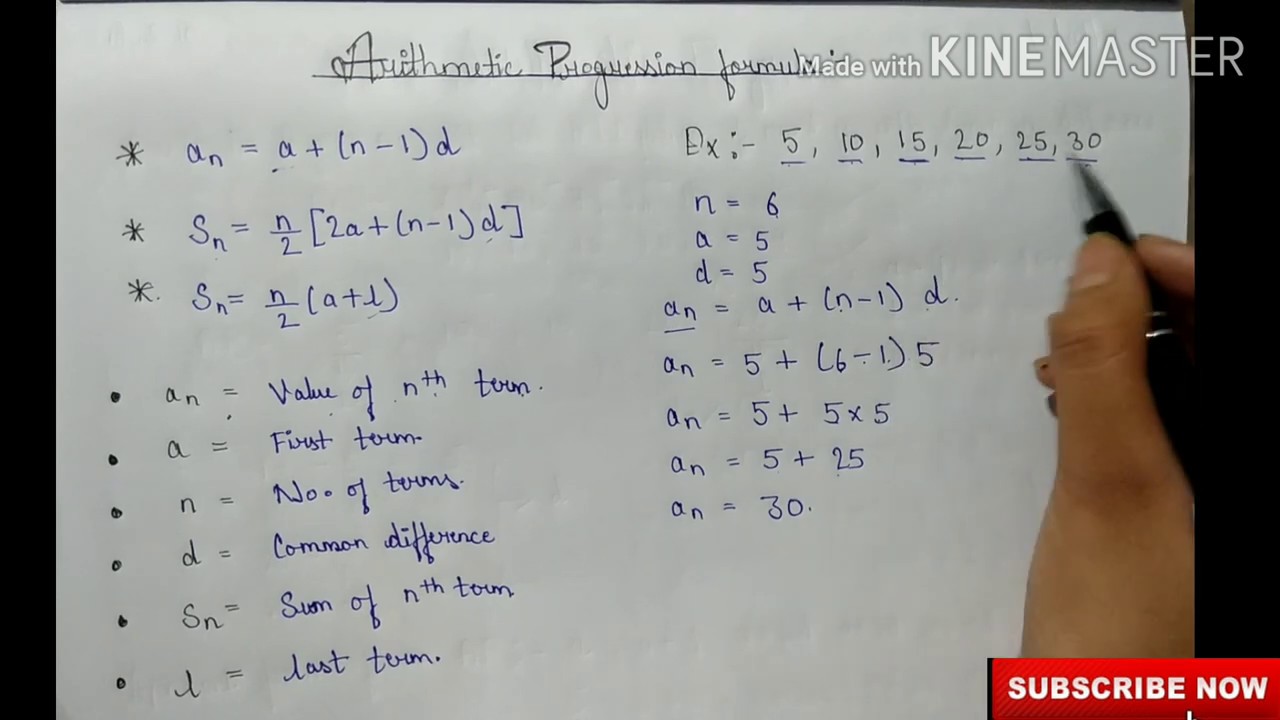 Arithmetic Progression formula
Made with KINEMASTER
* an = a + (n-1) d
* Sn = n/2 [2a + (n-1) d]
* Sn = n/2 (a+l)
• an = Value of nth term.
• a = First term.
• n = No. of terms.
• d = Common difference
• Sn = Sum of nth term
• l = last term.
Ex:- 5, 10, 15, 20, 25, 30
n = 6
a = 5
d = 5
an = a + (n-1) d.
an = 5 + (6-1) 5
an = 5 + 5x5
an = 5 + 25
an = 30.
SUBSCRIBE NOW